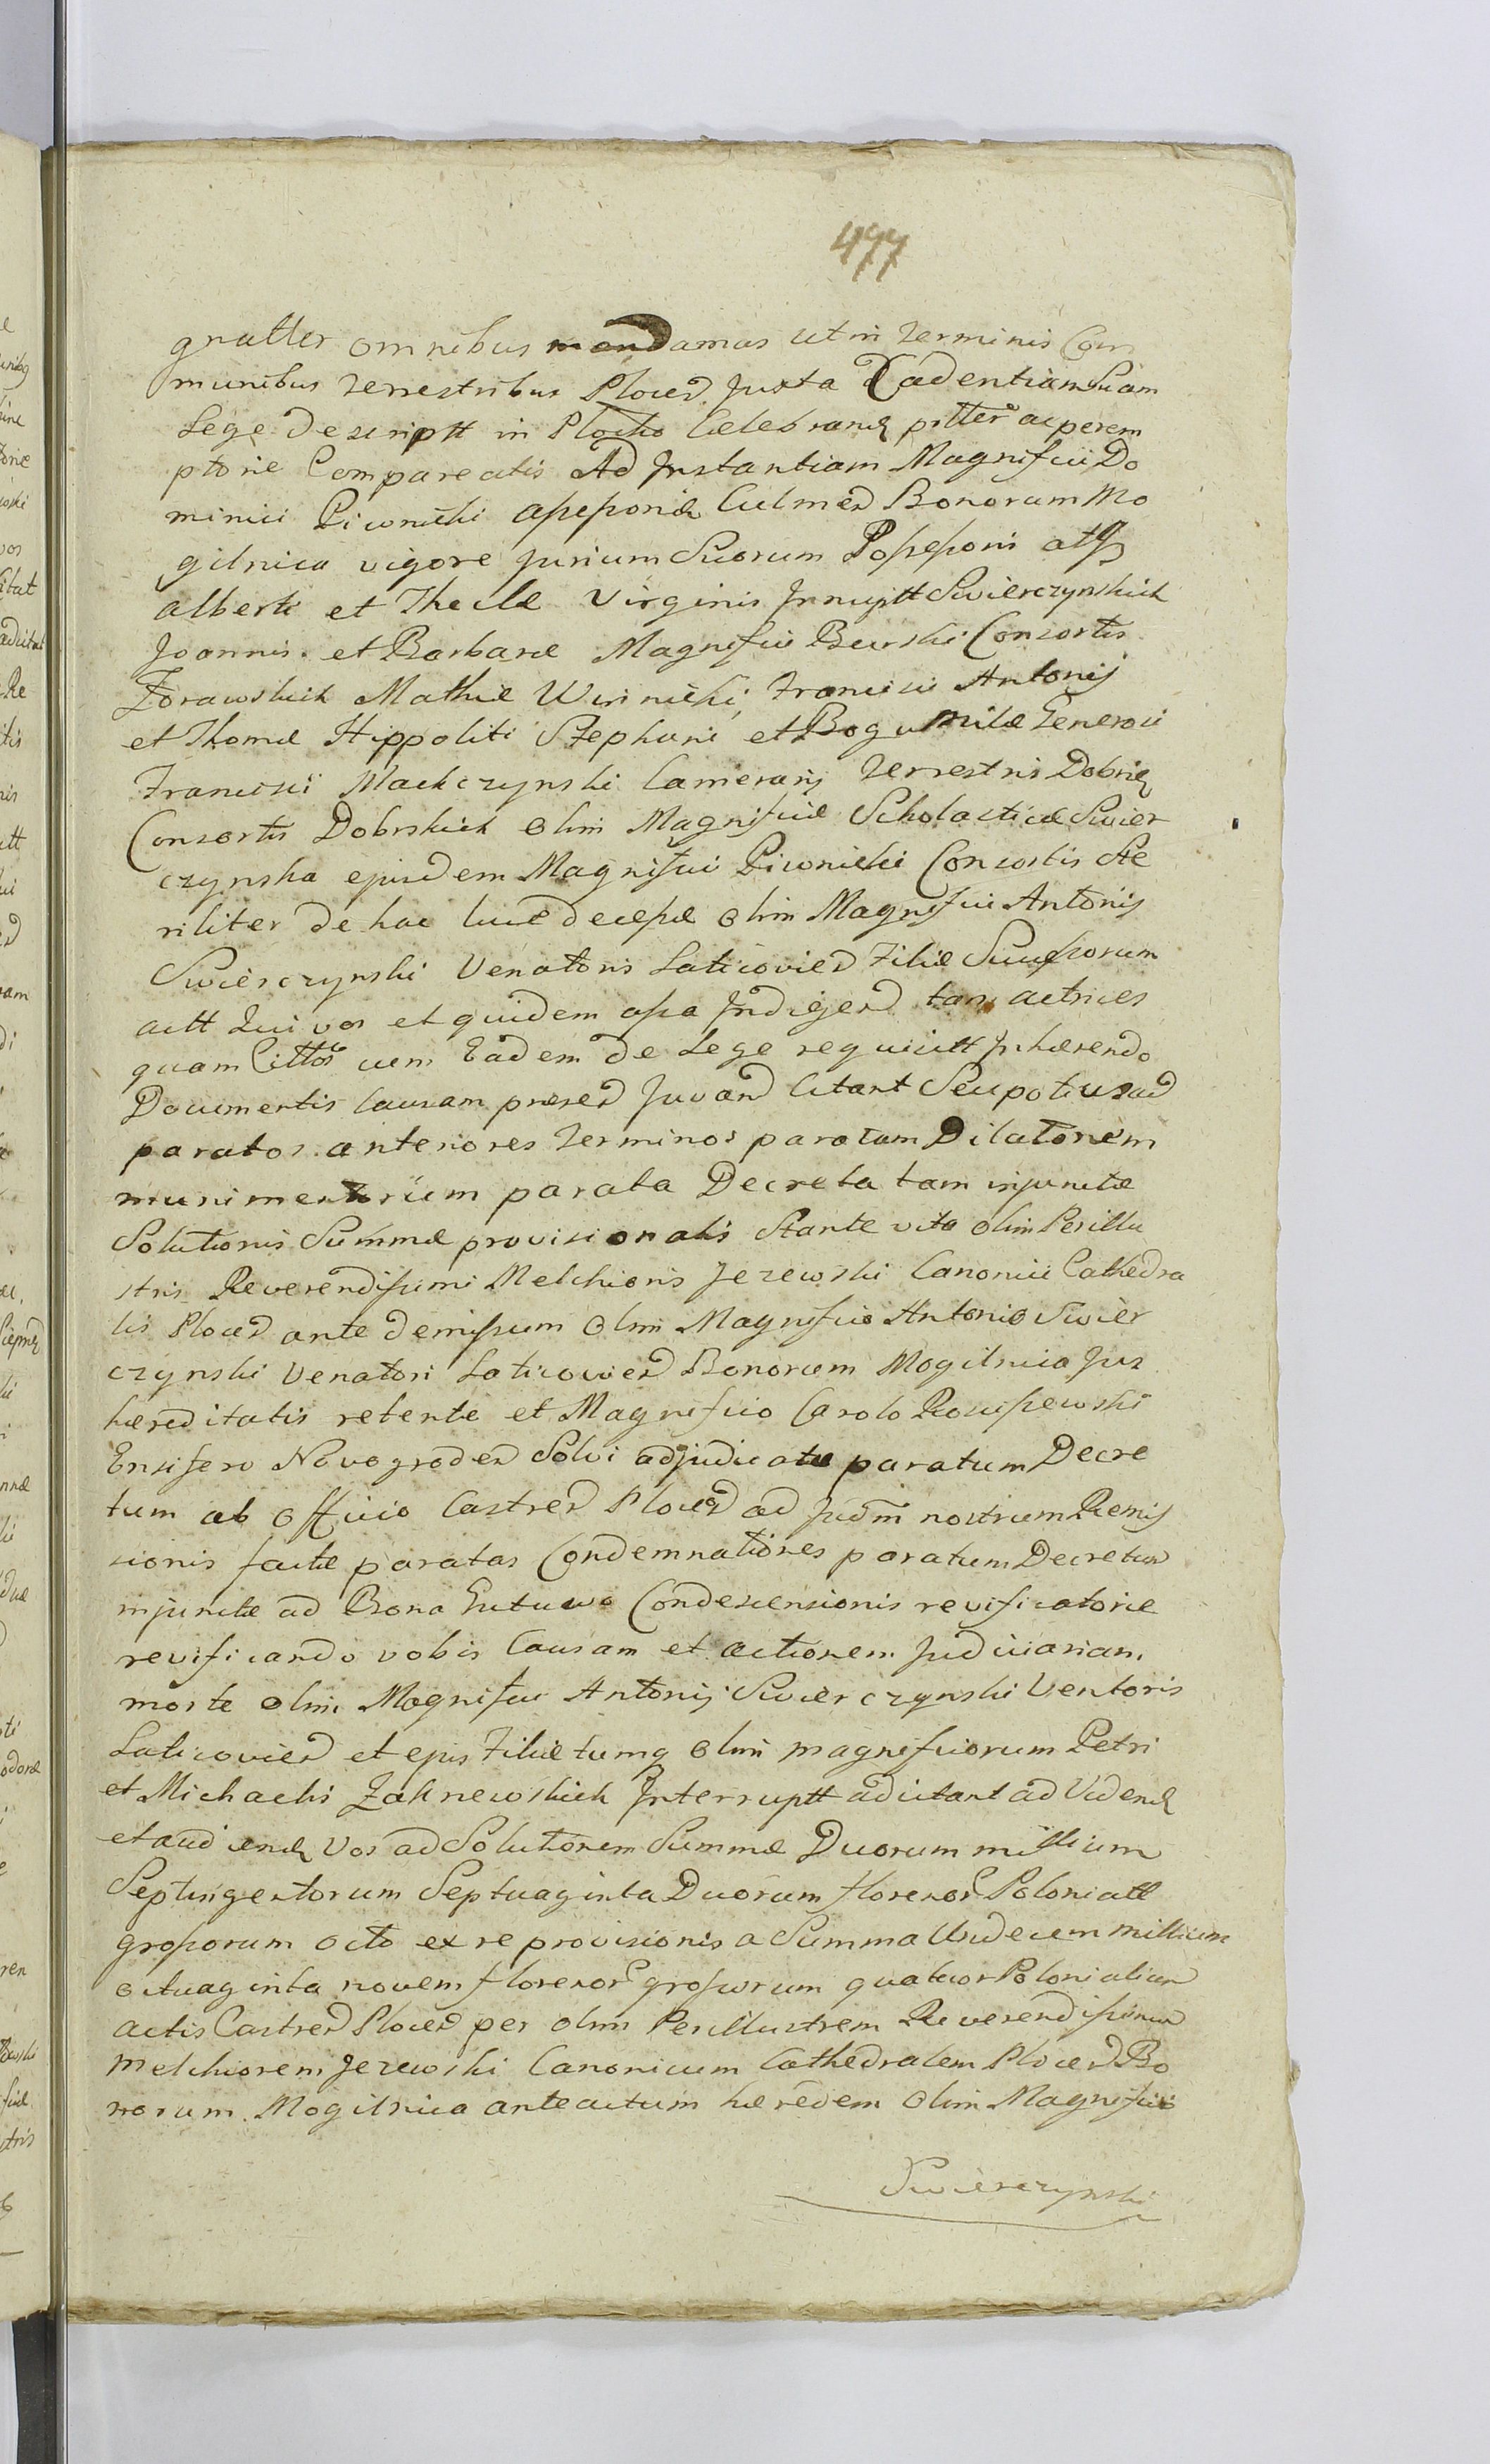 477
gnatter omnibus mandamus ut in Terminis Com
munibus Terrestribus Plocen Juxta Cadentiam Suam
Lege descriptt in Plocko Celebrand pntter ac perem
ptorie Compareatis Ad Jnstantiam Magnifici Do
minici Piwnicki assessoris Culmen Bonorum Mo
gilnica vigore Jurium Suorum Possessoris atq
alberti et Theclæ Virginis Jnnuptt Swierczynskich
Joannis et Barbaræ Magnifici Consortis
Zorawskich Mathiæ Winnicki, Francisci Antonij
et Thomæ Hippoliti Stephani et Bogumilæ Generosi
Francisci Mackczynski Camerarij Terrestris Dobrin
Consortis Dobrskich Olim Magnificæ Scholasticæ Swier
czynska ejusdem Magnifici Piwnicki Consortis Ste
riliter de hac luce decessæ Olim Magnifici Antonij
Swierczynski Venatoris Laticovien Filiæ Successorum
actt Qui vos et quidem Jndigen tam actrices
quam Cittos cum Eadem de Lege requisitt Jnhærendo
Documentis Causam præsen Juvand Citant Seu potius ad
paratos anteriores Terminos paratam Dilationem
munimentorum parata Decreta tam injunctæ
Solutionis Summæ provisionalis Stante vita olim Perillu
stris Reverendissimi Melchioris Jezewski Canonici Cathedra
lis Plocen ante demissum Olim Magnifico Antonio Swier
czynski Venatori Laticovien Bonorum Mogilnica Jus
hæreditatis retente et Magnifico Carolo
Ensifero Novogroden Solvi adjudicatæ paratum Decre
tum ab Officio Castren Plocen ad Judm nostrum Remis
sionis factæ paratas Condemnationes paratum Decretum
injunctæ ad Bona Condescensionis revisicatoriæ
revificando vobis Causam et actionem Judiciariam
morte olim Magnifici Antonij Swierczynski Ventoris
Laticovien et ejus Filiæ tumq Olim magnificorum Petri
et Michaelis Zakrzewskich Jnterruptt adcitant ad Videnq
et audienq Vos ad Solutionem Summæ Duorum millium
Septingentorum Septuaginta Duorum florenor Polonicall
grossorum octo ex re provisionis a Summa Undecem millium
octuaginta novem florenor grossorum quatuor Polonicalium
actis Castren Plocen per olim Perillustrem Reverendissimum
Melchiorem Jezewski Canonicum Cathedralem Plocen Bo
norum Mogilnica anteactum hæredem Olim Magnifico
Swierczynski